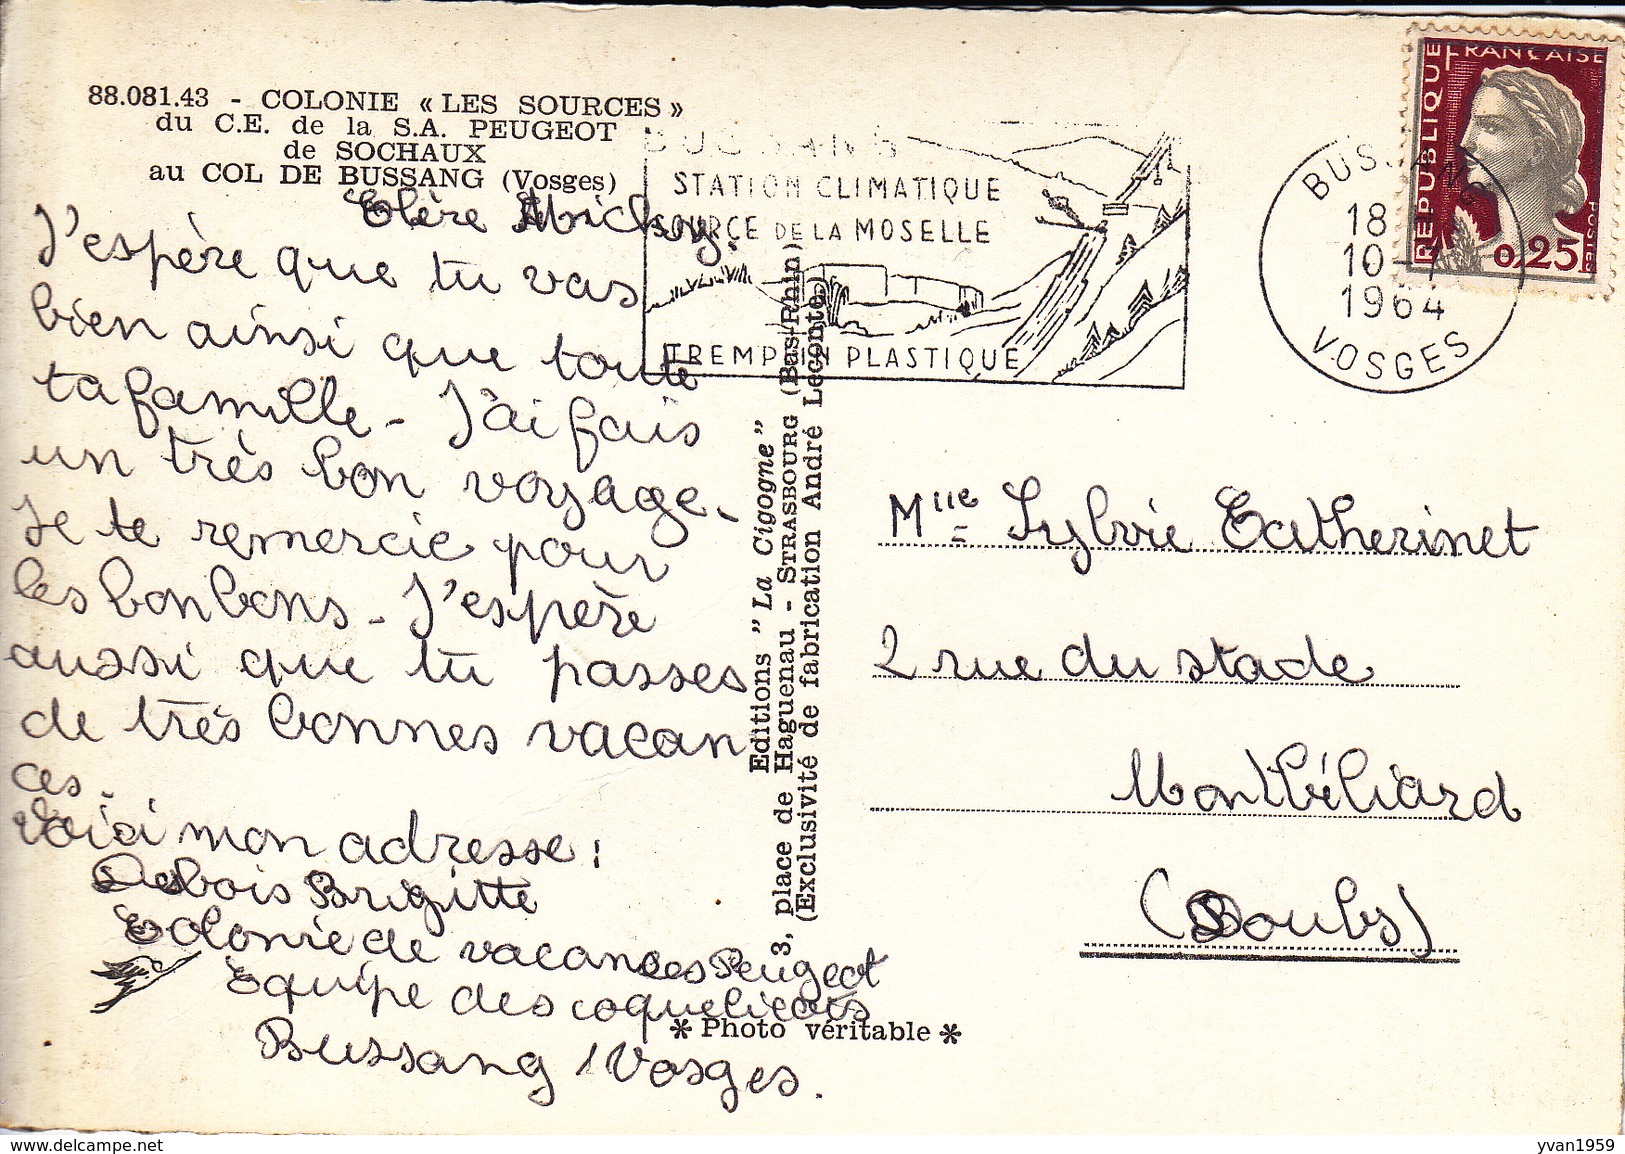 88.081.43 - COLONIE « LES SOURCES »
du C.E. de la S.A. PEUGEOT
de SOCHAUX
au COL DE BUSSANG (Vosges)
J'espère que tu vas
bien ainsi que toute
ta famille - J'ai fais
un très bon voyage -
Je te remercie pour
les bonbons - J'espère
aussi que tu passes
de très bonnes vacan
ces.
Voici mon adresse :
Debois Brigitte
Colonie de vacances Peugeot
Equipe des coquelicots
Bussang (Vosges.
* Photo véritable *
Editions " La Cigogne "
3, place de Haguenau - STRASBOURG (Bas-Rhin)
(Exclusivité de fabrication André Leconte
BUSSANG
STATION CLIMATIQUE
SOURCE DE LA MOSELLE
TREMPLIN PLASTIQUE
BUSSANG
18
10-7
1964
VOSGES
REPUBLIQUE FRANÇAISE
0,25
POSTES
Mlle Sylvie Catherinet
2 rue du stade
Montbéliard
(Doubs)
www.delcampe.net
yvan1959